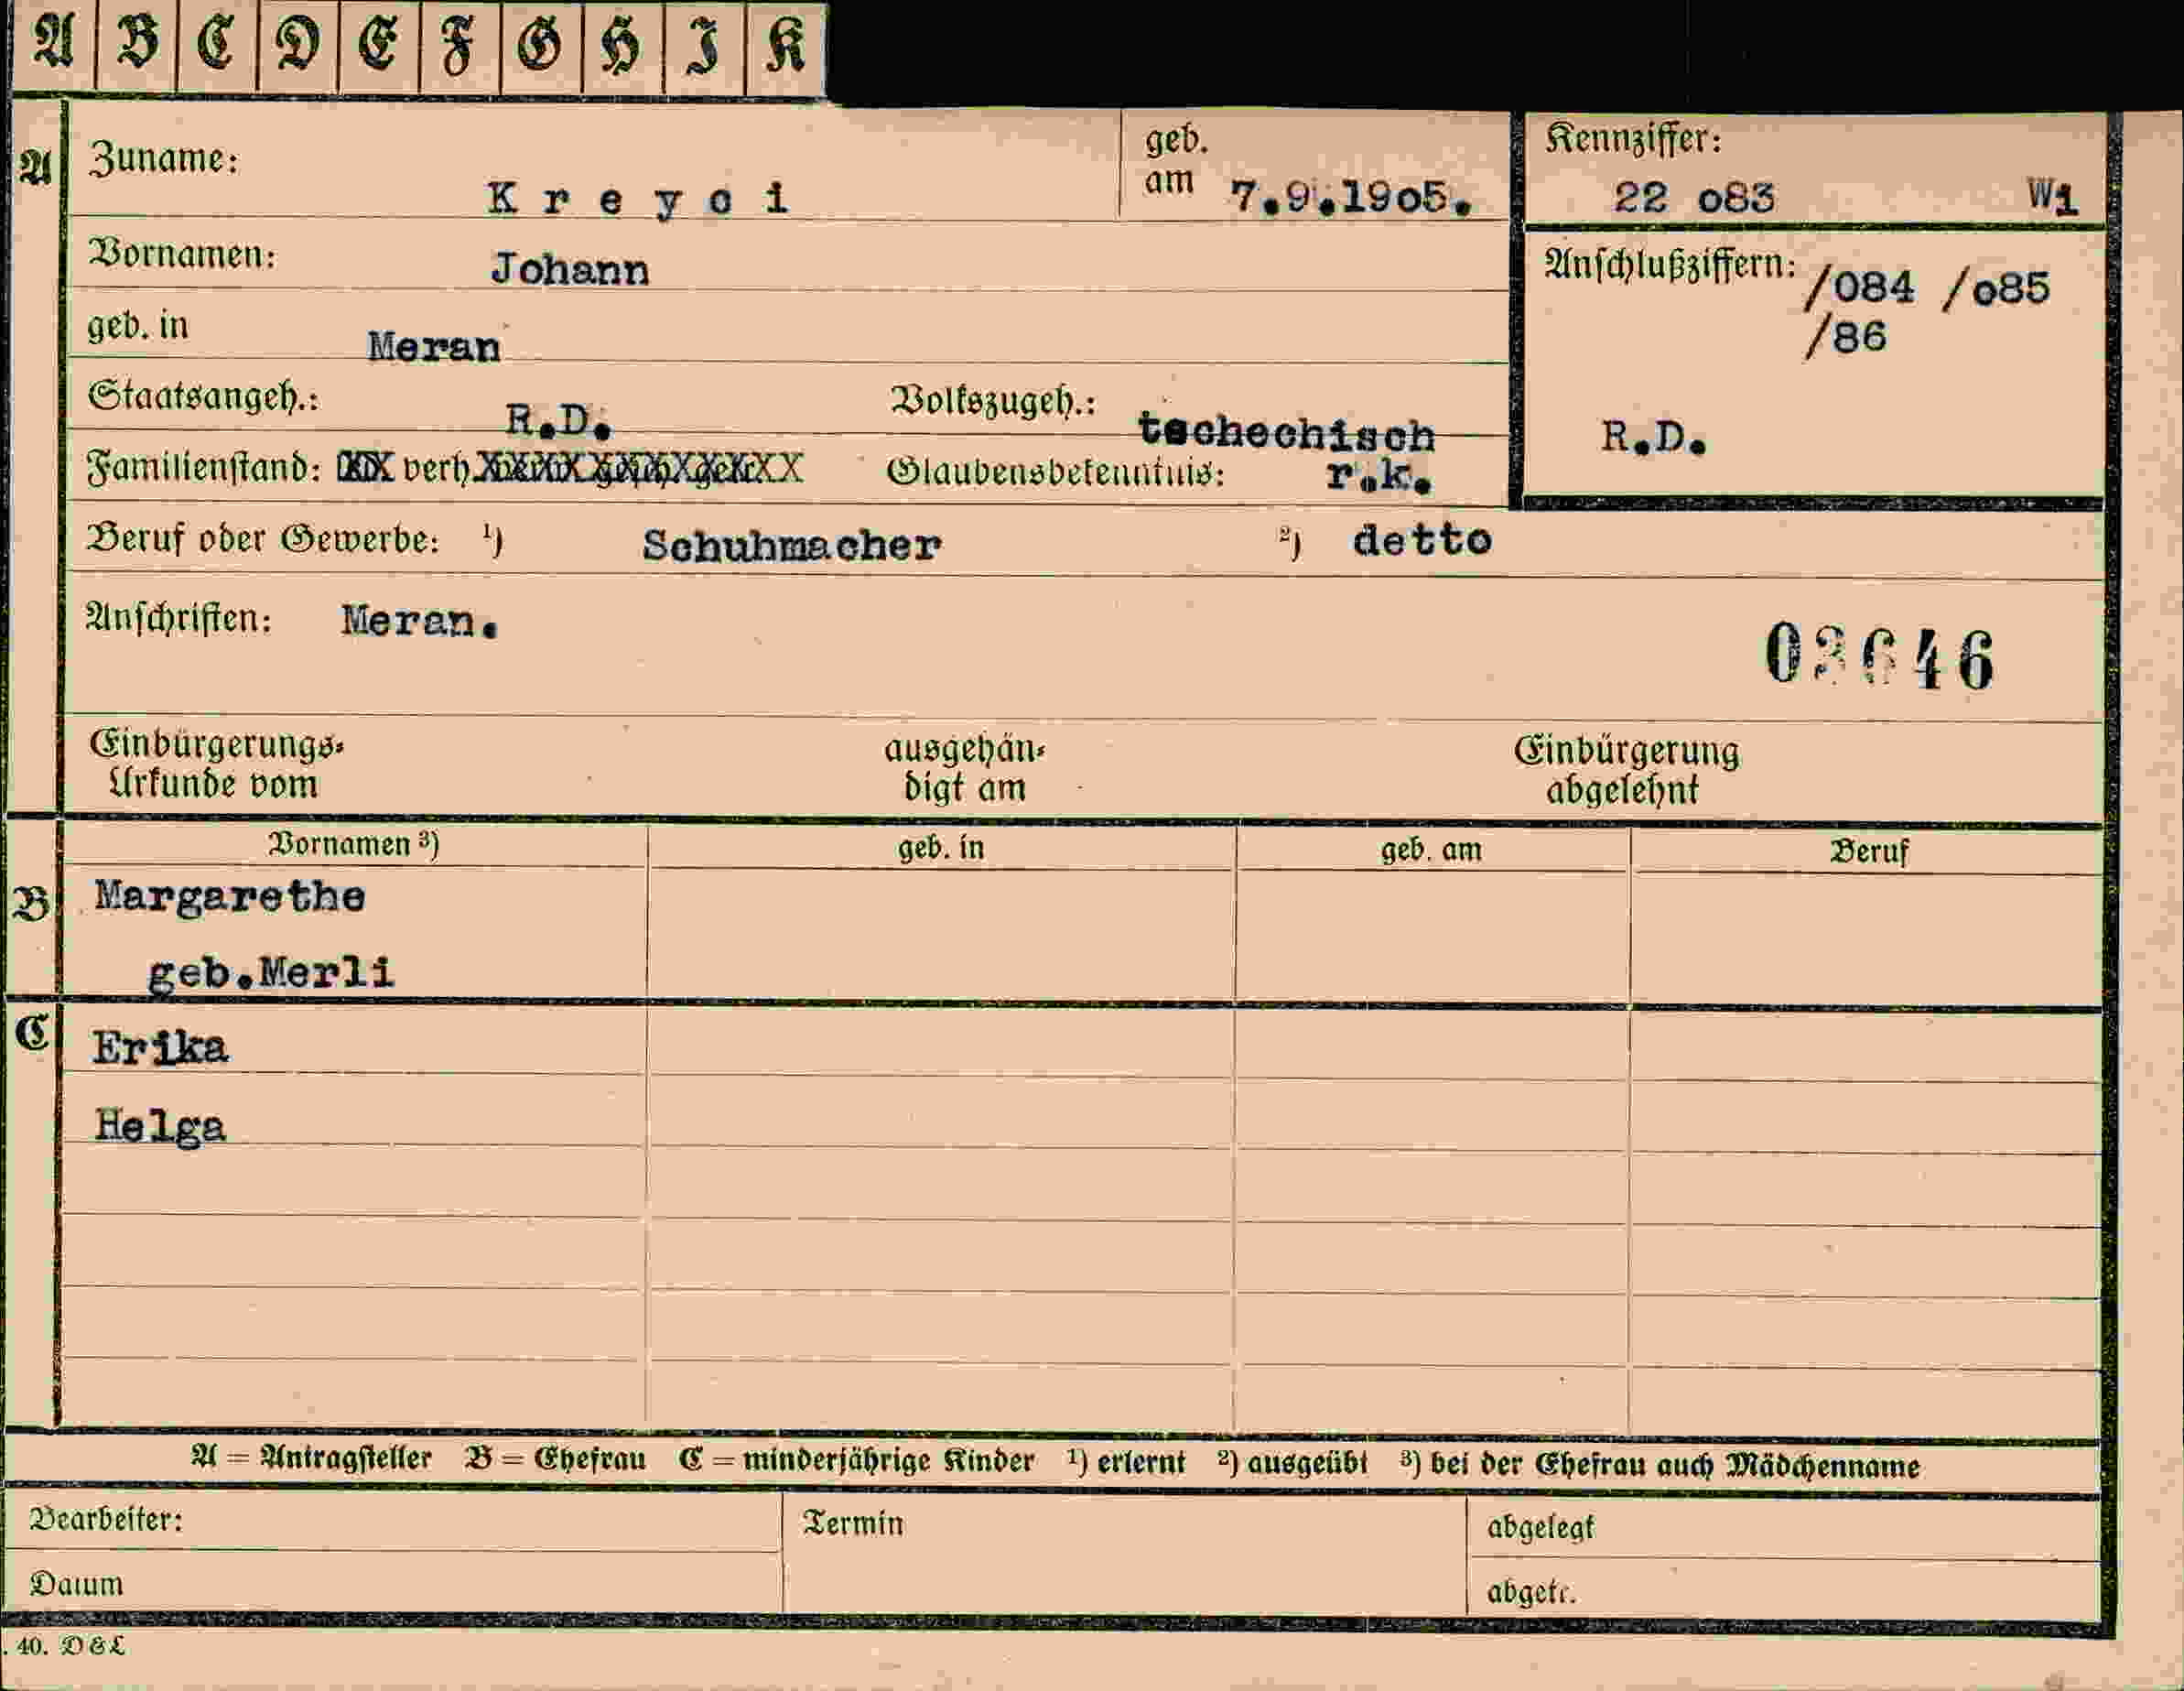 A B C D E F G H I K
A
Zuname: Kreyci
geb. am 7.9.19o5.
Kennziffer: 22 o83 Wi
Vornamen: Johann
Anschlußziffern: /084 /o85
/86
geb. in Meran
Staatsangeh.: R.D.
Volkszugeh.: tschechisch
R.D.
Familienstand: verh.
Glaubensbekenntnis: r.k.
Beruf oder Gewerbe: 1) Schuhmacher 2) detto
Anschriften: Meran.
03646
Einbürgerungs-
Urkunde vom
ausgehän-
digt am
Einbürgerung
abgelehnt
Vornamen 3) geb. in geb. am Beruf
B Margarethe
geb.Merli
C Erika
Helga
A = Antragsteller B = Ehefrau C = minderjährige Kinder 1) erlernt 2) ausgeübt 3) bei der Ehefrau auch Mädchenname
Bearbeiter: Termin abgelegt
Datum abgetr.
. 40. D&L